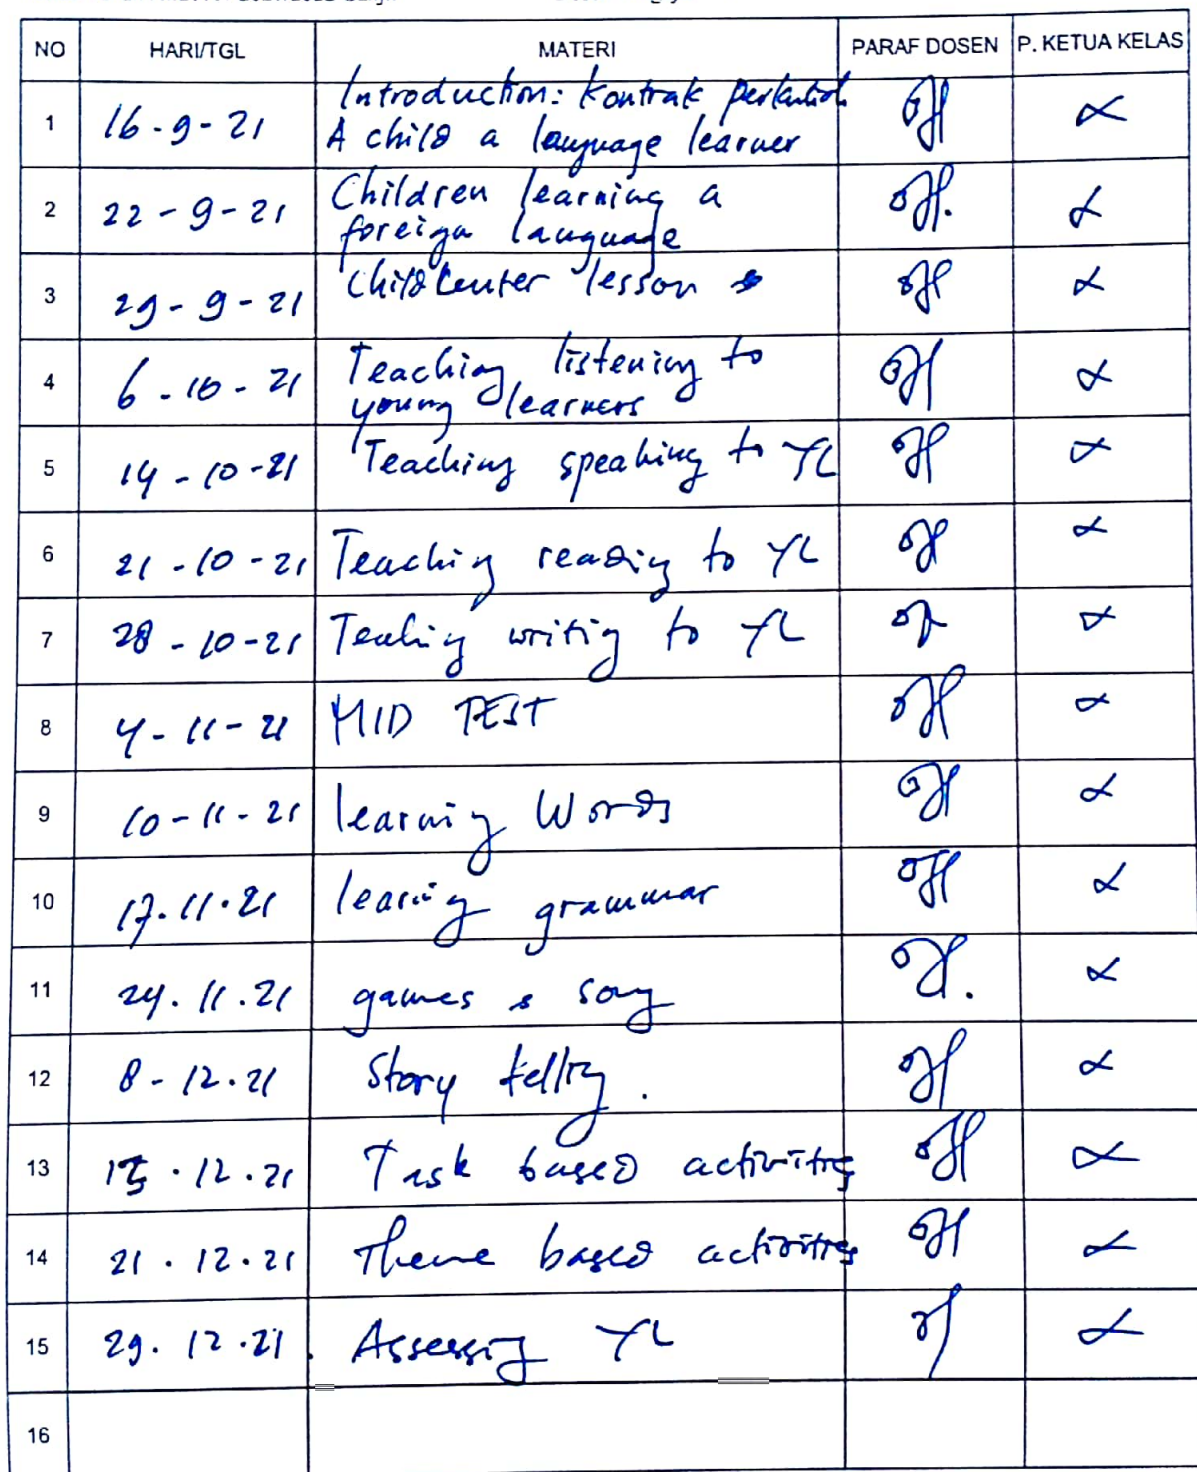 NO HARI/TGL MATERI PARAF DOSEN P. KETUA KELAS
1 16-9-21 Introduction: Kontrak perkuliah
A child a language learner
2 22-9-21 Children learning a
foreign language
3 29-9-21 Child Center lesson
4 6-10-21 Teaching listening to
young learners
5 14-10-21 Teaching speaking to YL
6 21-10-21 Teaching reading to YL
7 28-10-21 Teaching writing to YL
8 4-11-21 MID TEST
9 10-11-21 learning Words
10 17.11.21 learning grammar
11 24.11.21 games & song
12 8-12.21 Story telling.
13 15.12.21 Task based activities
14 21.12.21 Theme based activities
15 29.12.21. Assessing YL
16